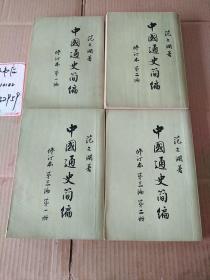 范文瀾著
中國通史简编
修订本第一編
范文瀾著
中國通史简编
修订本第二編
范文瀾著
中國通史简编
修订本第三編第一册
范文瀾著
中國通史简编
修订本第三編第二册